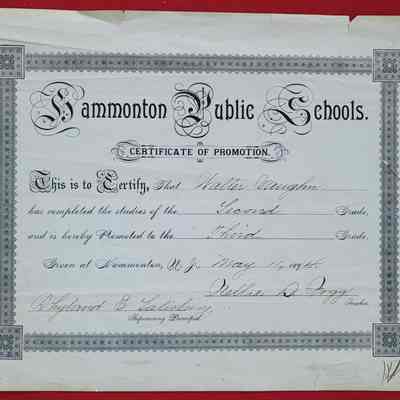 Hammonton Public Schools.
CERTIFICATE OF PROMOTION.
This is to Certify, That Walter Vaughn
has completed the studies of the Second Grade,
and is hereby Promoted to the Third Grade.
Given at Hammonton, N.J. May
Nellie D. Fogg
Teacher
E
Supervising Principal.